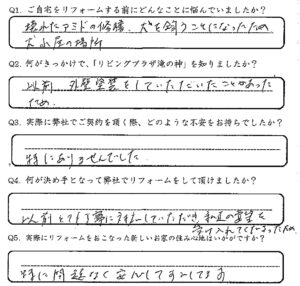 Q1. ご自宅をリフォームする前にどんなことに悩んでいましたか?
壊れたアミドの修繕、犬を飼うことになったため
犬小屋の場所
Q2. 何がきっかけで、「リビングプラザ滝の神」を知りましたか?
以前 外壁塗装をしていただいたことがあった
ため
Q3. 実際に弊社でご契約を頂く際、どのような不安をお持ちでしたか?
特にありませんでした
Q4. 何が決め手となって弊社でリフォームをして頂けましたか?
以前とても丁寧に対応していただき 私達の要望を
受け入れてくださったため
Q5. 実際にリフォームをおこなった新しいお家の住み心地はいかがですか?
特に問題なく安心してすごしてます